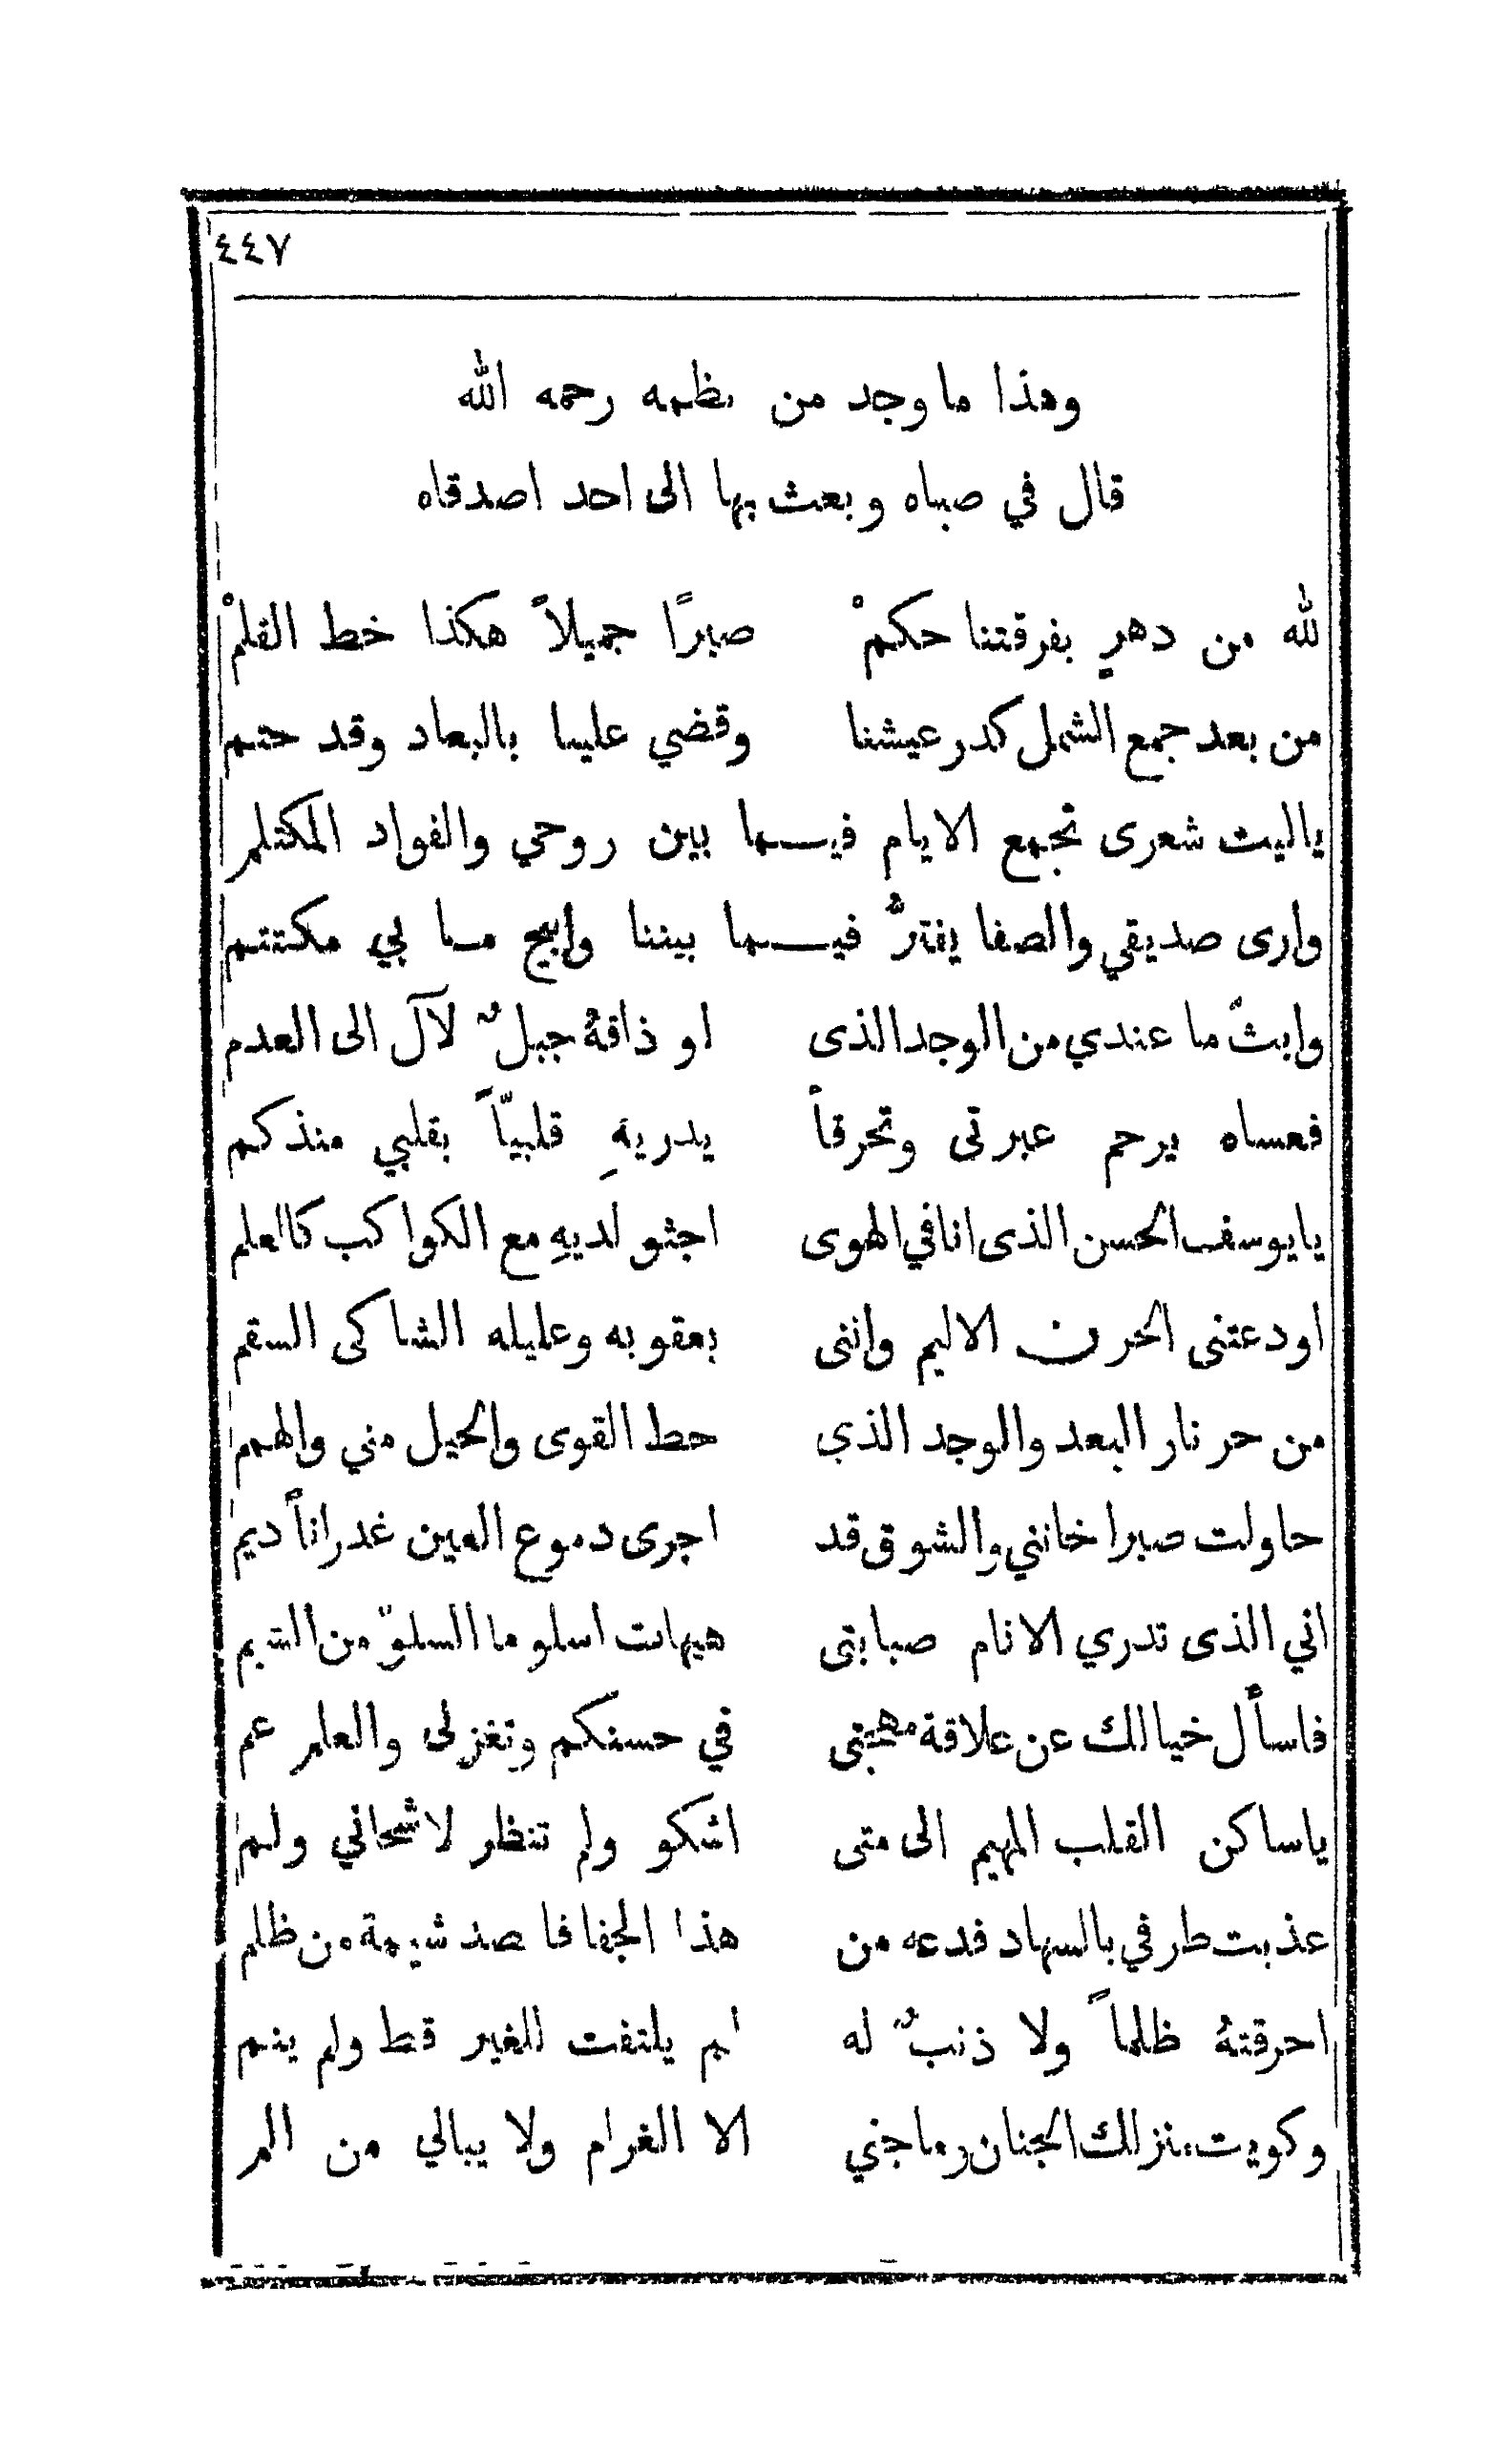 ٤٤٧
وهذا ما وجد من نظمه رحمه الله
قال في صباه وبعث بها الى احد اصدقاه
لله من دهرٍ بفرقتنا حكمْ صبرًا جميلاً هكذا خط القلمْ
من بعد جمع الشمل كدر عيشنا وقضي علينا بالبعاد وقد حتم
ياليت شعرى تجمع الايام فيما بين روحي والفواد المكتلم
وارى صديقي والصفا يفترُّ فيما بيننا وابيح ما بي مكتتم
وابثّ ما عندي من الوجد الذى او ذاقهُ جبلٌ لآل الى العدم
فعساه يرحم عبرتى وتحرقاً يدريهِ قلبيّاً بقلبي منذكم
يايوسف الحسن الذى انا في الهوى اجثو لديهِ مع الكواكب كالعلم
اودعتنى الحزن الاليم واننى بعقوبه وعليله الشاكى السقم
من حر نار البعد والوجد الذي حط القوى والحيل مني والهمم
حاولت صبرا خانني والشوق قد اجرى دموع العين غدراناً ديم
اني الذى تدري الانام صبابتى هيهات اسلو ما السلوّ من الشيم
فاسأل خيالك عن علاقة مهجتى في حسنكم وتغزلى والعلم عم
ياساكن القلب المهيم الى متى اشكو ولم تنظر لاشجاني ولم
عذبت طرفي بالسهاد فدعه من هذا الجفا فاصد شيمة من ظلم
احرقتهُ ظلماً ولا ذنبٌ له لم يلتفت للغير قط ولم ينم
وكويت منزلك الجنان وماجني الا الغرام ولا يبالي من الم